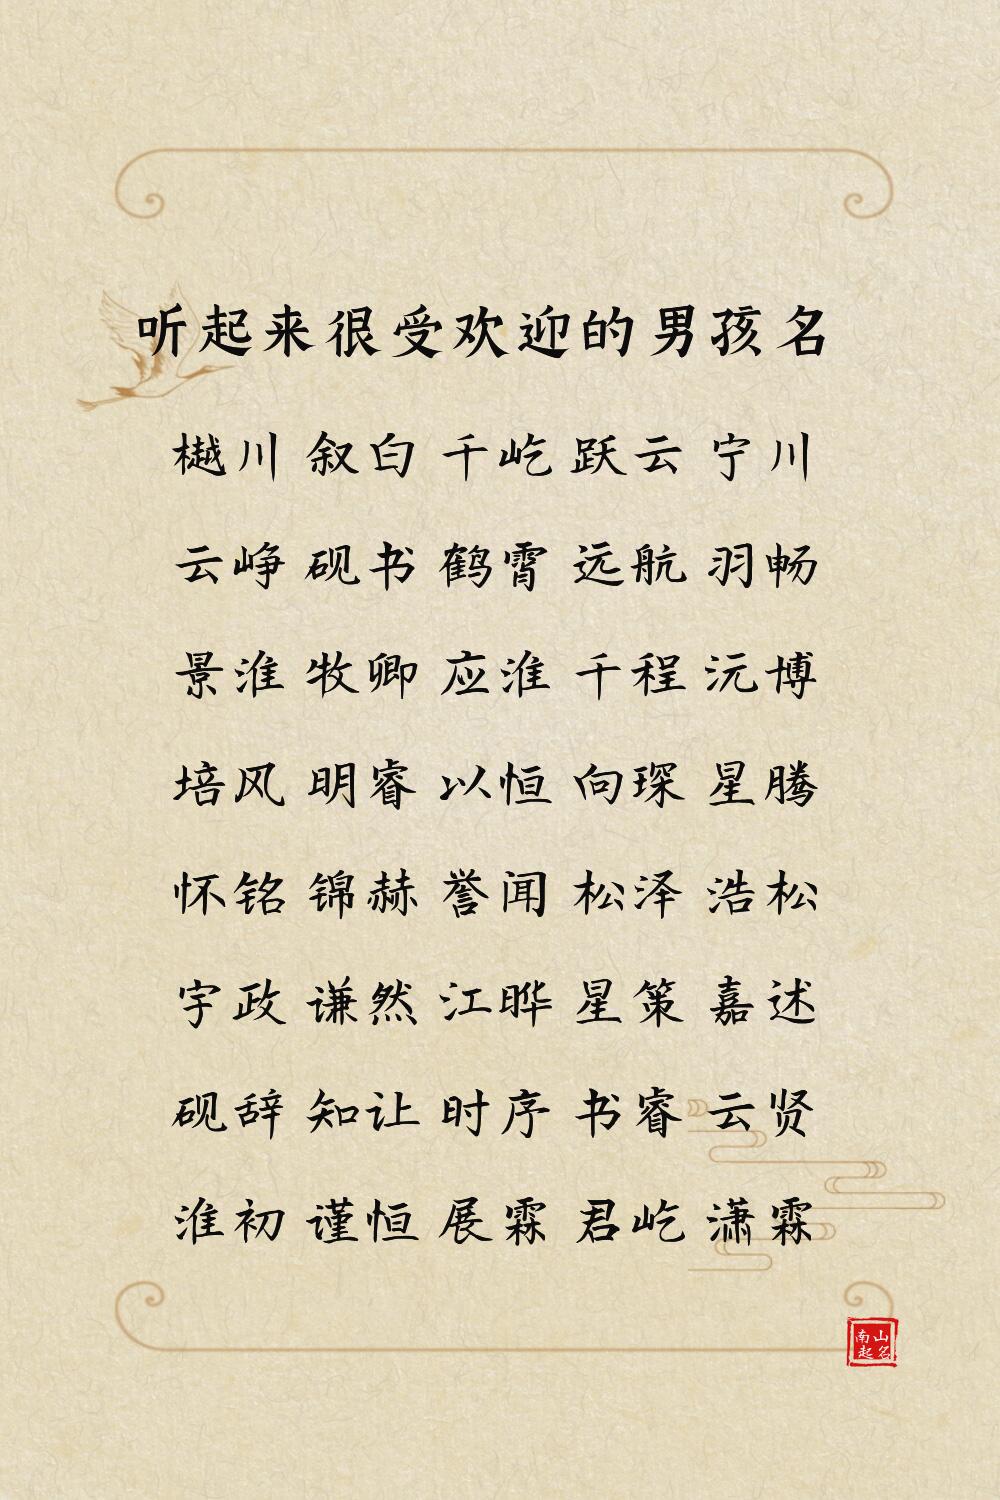 听起来很受欢迎的男孩名
樾川 叙白 千屹 跃云 宁川
云峥 砚书 鹤霄 远航 羽畅
景淮 牧卿 应淮 千程 沅博
培风 明睿 以恒 向琛 星腾
怀铭 锦赫 誉闻 松泽 浩松
宇政 谦然 江晔 星策 嘉述
砚辞 知让 时序 书睿 云贤
淮初 谨恒 展霖 君屹 潇霖
南山
起名